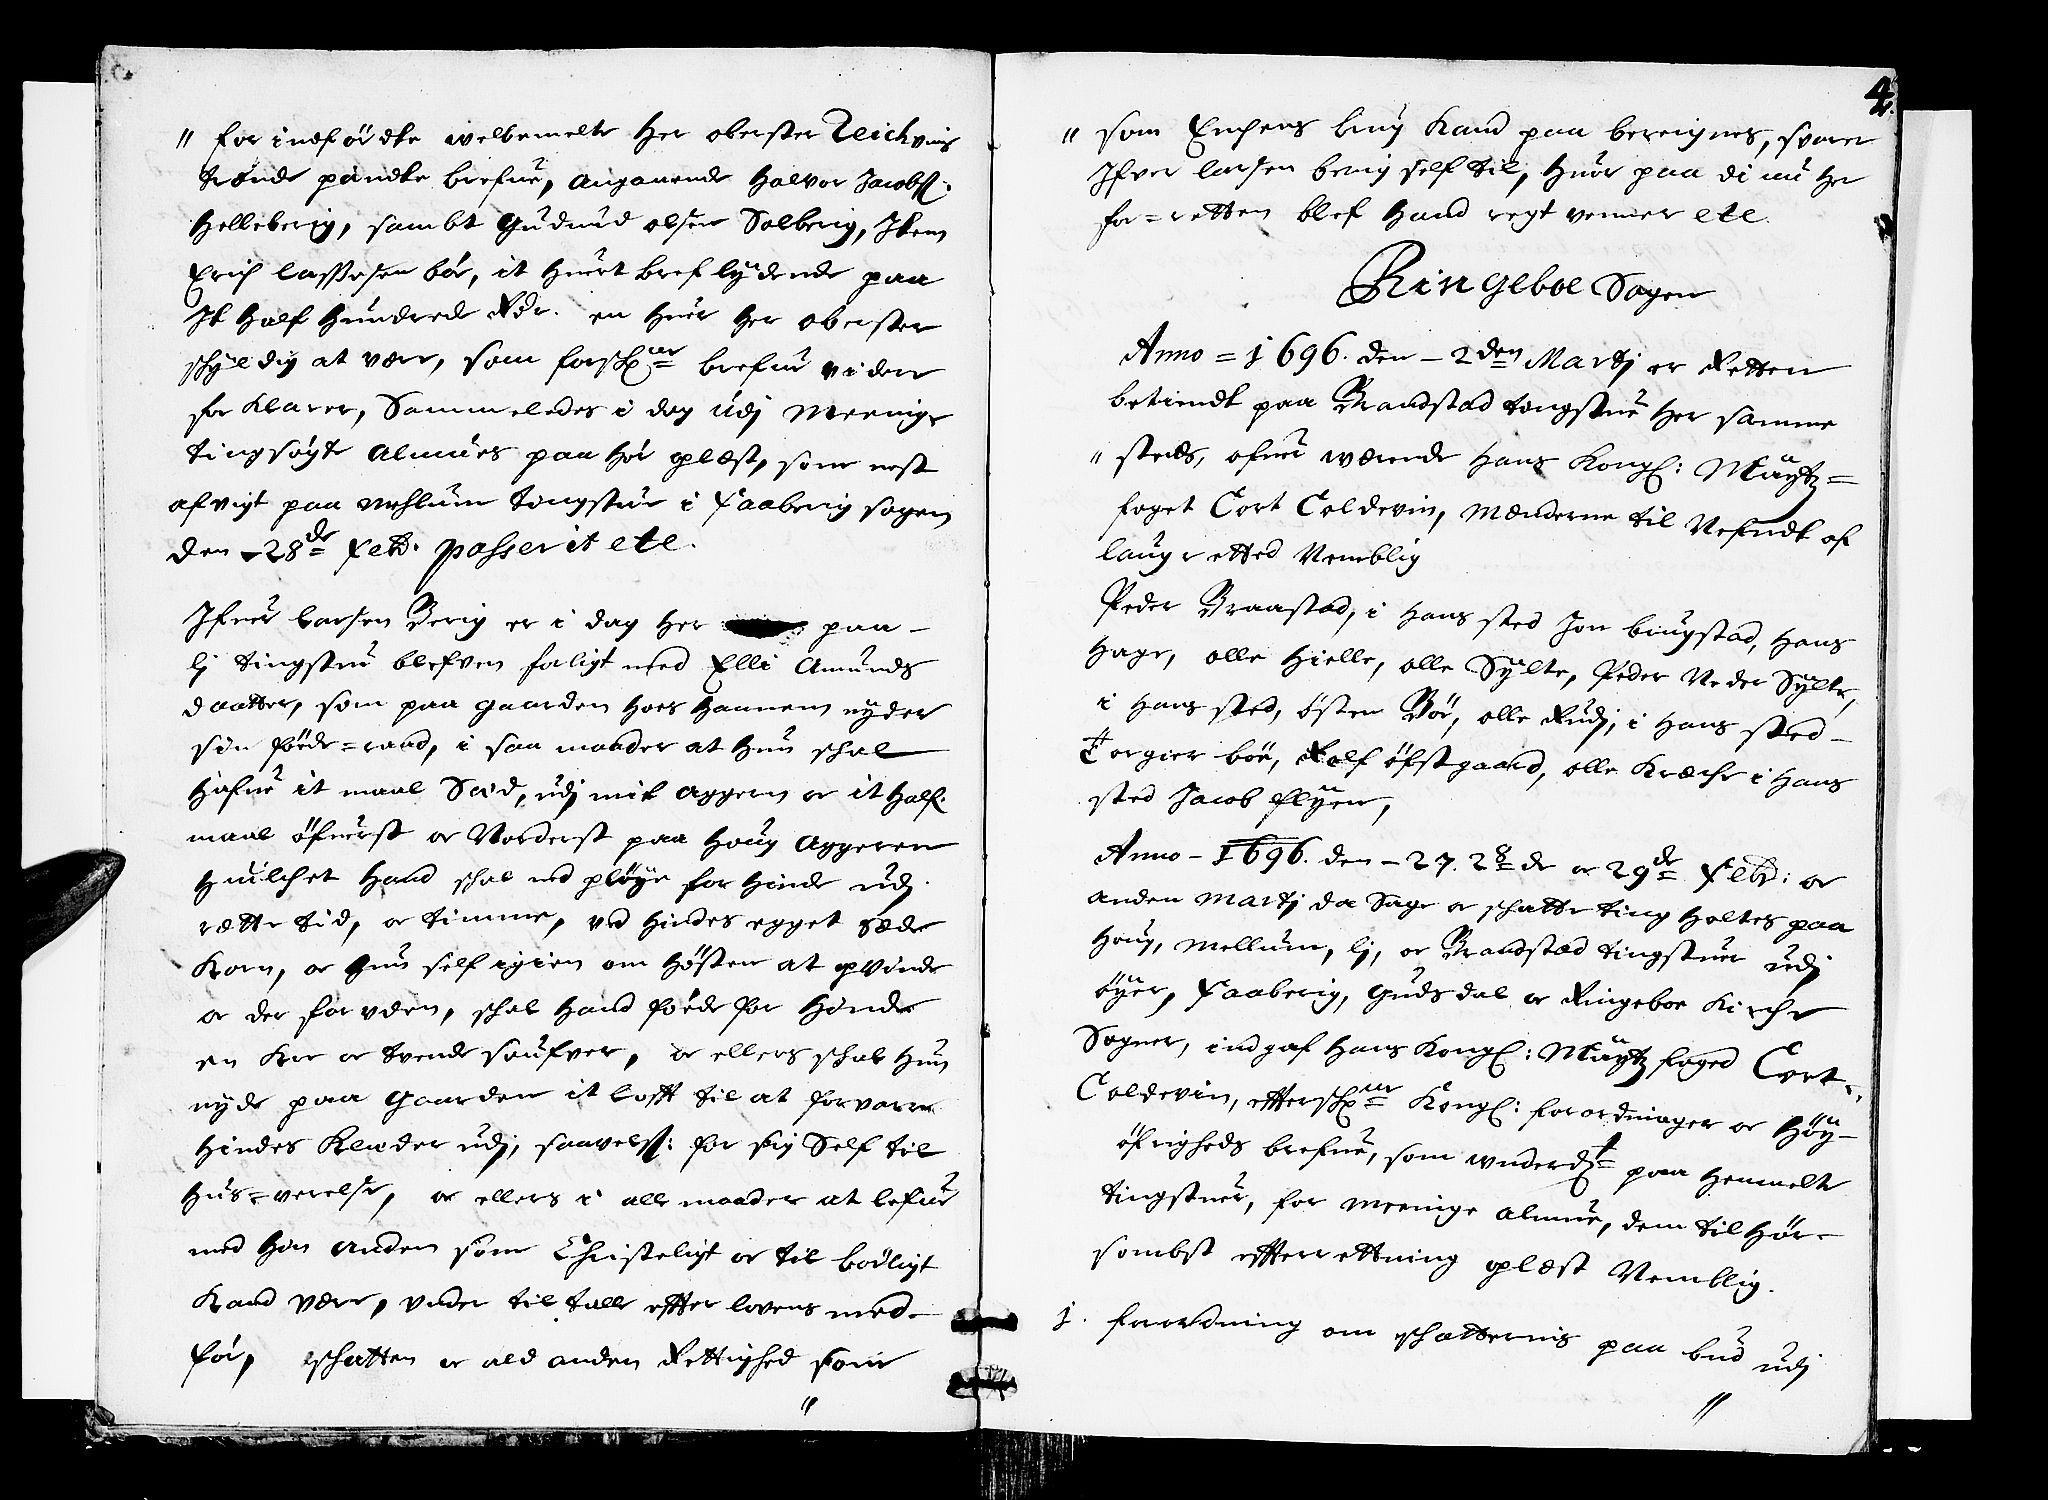 " for indfördte welbemelte Her oberster Teichvins
trende pandte brefue, angaaende Halvor Jacobß:
Helleberig, sambt Gudmud olsen Solberig, Item
Erich lassesen bör, it huert bref lydende paa
It half Hundrede Rdr. en huer Her oberster
schyldig at være, som forschr: brefue videre
for klarer, Sammeledes i dag udj Meenige
tingsögte almues paa hör oplæst, som nest
afvigt paa Mehlum tingstue i Faaberig sogen
den -28de Feb: passerit etc.
Ifuer larsen Berig er i dag her paa
lj tingstue blefven forligt med Elli Amunds
daatter, som paa gaarden hoes hannem nyder
sin föde=raad, i saa maader at hun schal
hafue it maal Sæd, udj mit aggern oc it half
maal öfuerst oc Norderst paa Houg Aggeren
huilchet hand schal ved pløye for hinde udj
rætte tid, oc timme, ved hindes egget sæde
korn, oc hun self igien om høsten at opvinde
oc der foruden, schal hand föede for hinde
en koe oc tvende saufver, oc ellers schal hun
nyde paa gaarden it lofft til at forvare
hindes klæder udj, saavelß: for sig Self til
huus=verelse, oc ellers i alle maader at lefue
med hin anden som Christeligt oc tilbörligt
kand være, under til talle effter lovens med-
för, schatten oc ald anden Rettighed som
"
4.
" som Enchens brug kand paa bereignes, svarer
Ifver larsen berig self til, huor paa di nu her
for=retten blef hand regt venner etc.
Ringeboe Sogen
Anno = 1696. den - 2den Martj er Retten
betiendt paa Brandstad tingstue her samme
" steds, ofuer værende Hans Kongl: Mayts=
foget Cort Coldevin, mænderne til Nefndt af
laug retted Nemblig
Peder Braastad, i hans sted Jon brugstad, Hans
Hage, olle Hielle, olle Sylte, Peder Neder Sylte,
i Hans sted, östen Bör, olle Rudj, i hans sted-
Torgier böe, Rolf öfstgaard, olle Kræche i hans
sted Jacob Flyen,
Anno - 1696. den - 27. 28de oc 29de Feb: oc
anden Martj da Sage oc schatte ting holtes paa
Houg, Mellum, lj, oc Brandstad tingstuer udj
öyer, Faaberig, Gudsdal oc Ringeboe Kirche
Sogner, indgaf Hans Kongl: Mayts foged Cort
Coldevin, efferschr: Kongl: forordninger oc Höy-
öfrigheds brefue, som wnderdt: paa bemelte
tingstuer, for meenige almue, dem til hör-
sombst effterrettning oplæst Nemblig.
1. forordning om schatternis paa bud udj
"